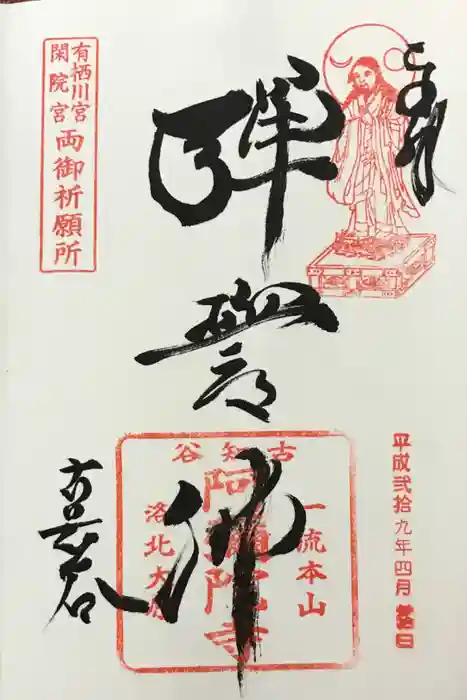 奉拝
彈誓佛
古知谷
有栖川宮
閑院宮
両御祈願所
古知谷
一流本山
阿彌陀寺
洛北大原
平成弐拾九年四月 日